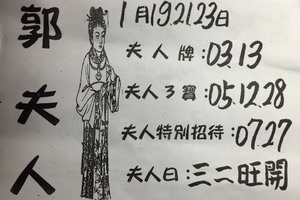 郭夫人
1月19.21.23日
夫人牌:03.13
夫人3寶:05.12.28
夫人特別招待:07.27
夫人曰:三二旺開